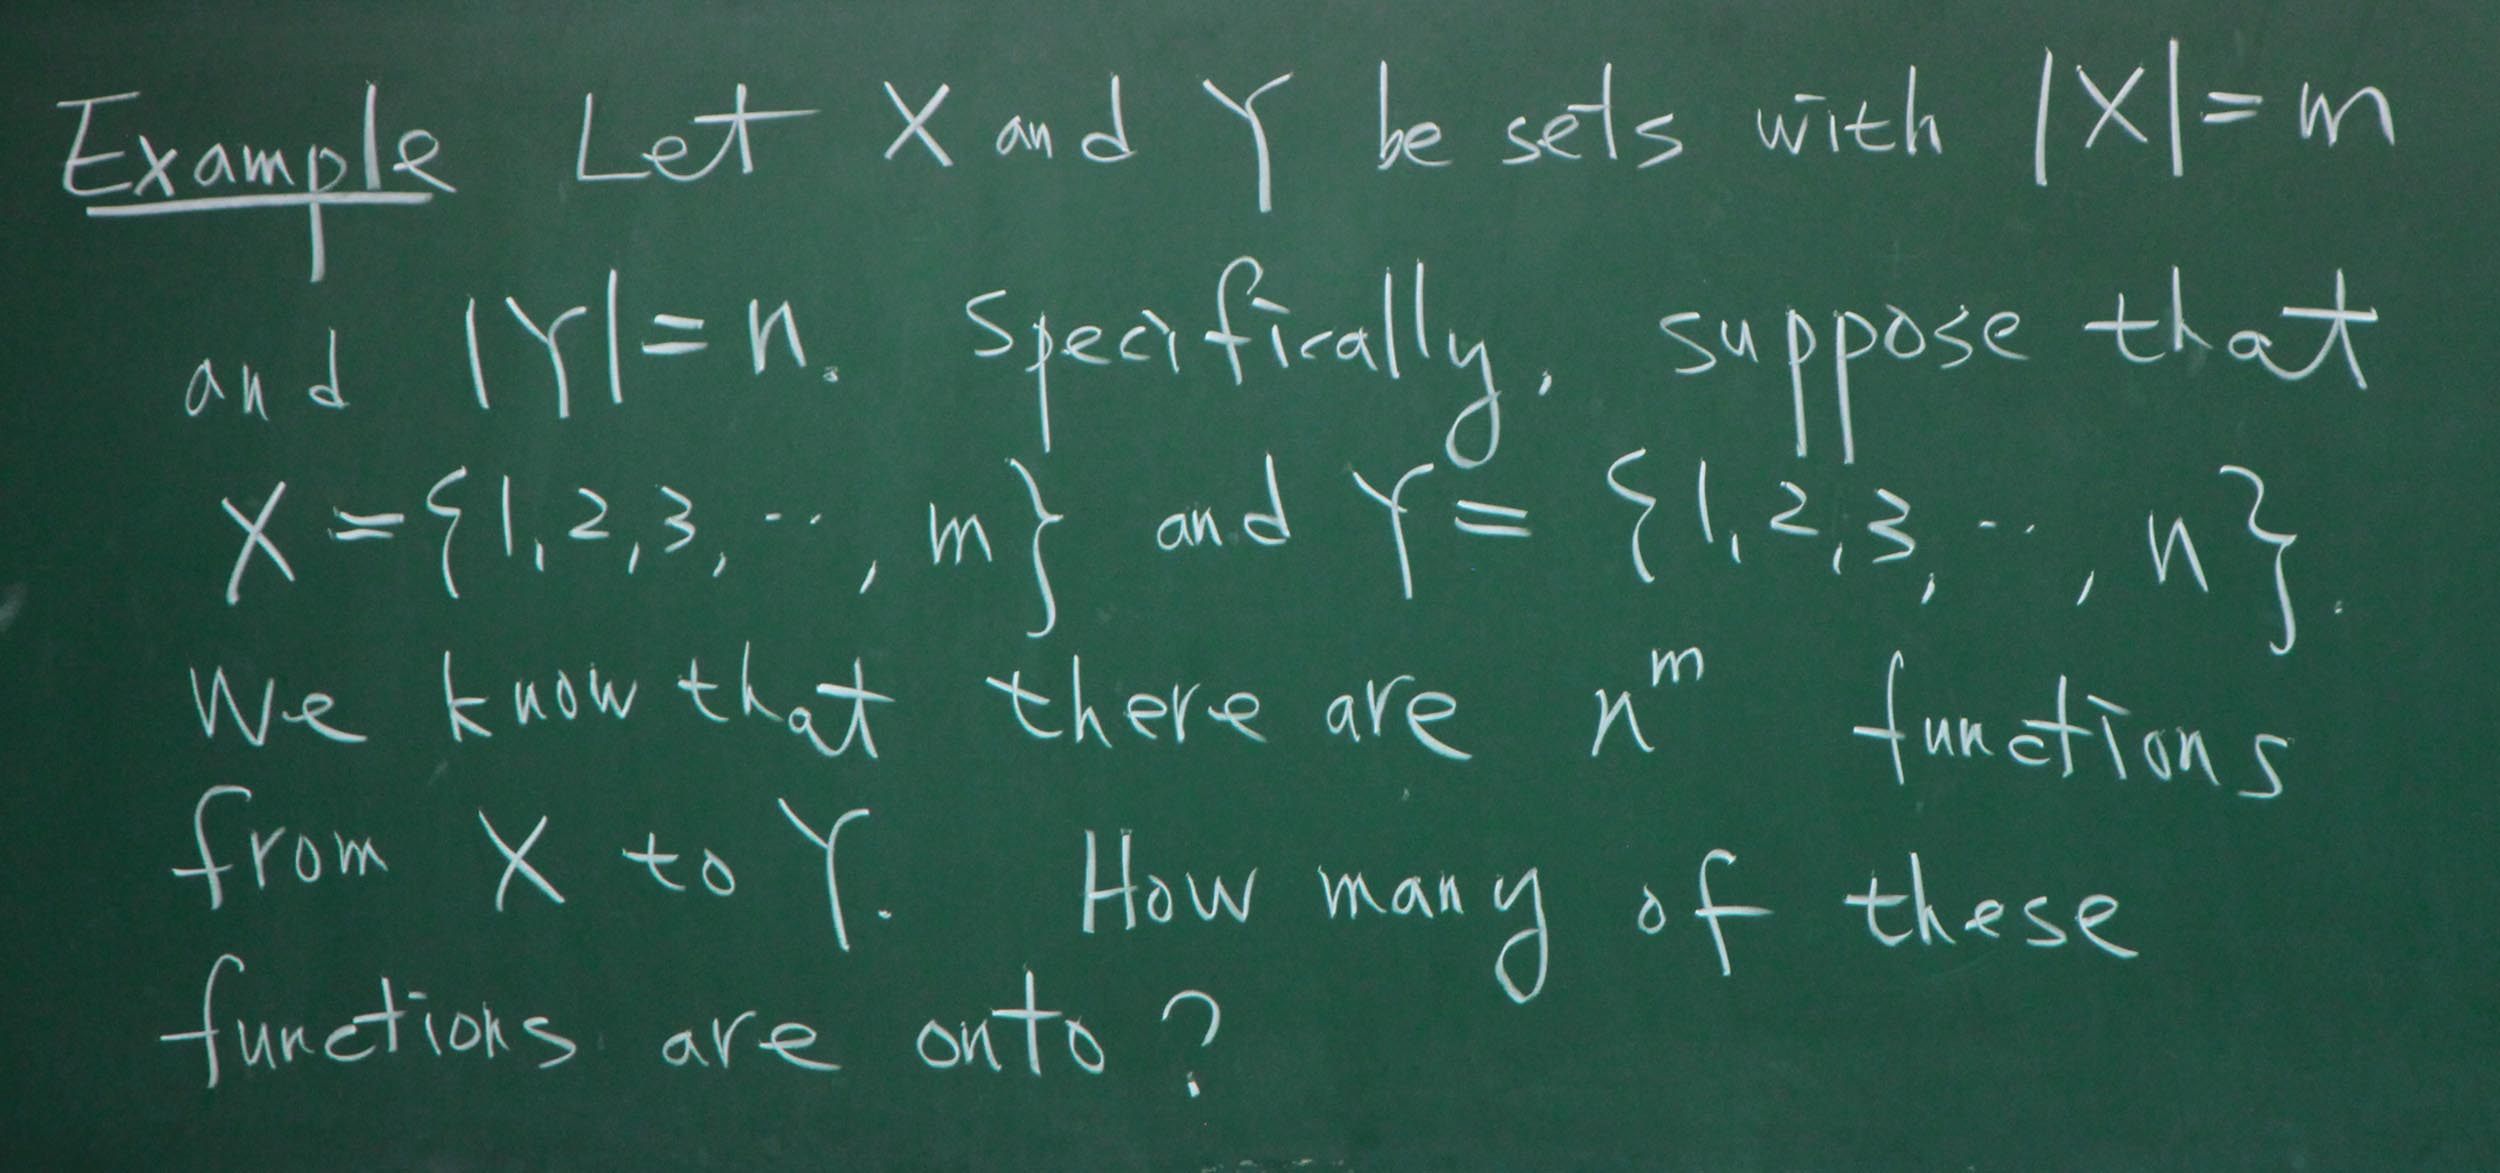 Example Let X and Y be sets with |X|=m
and |Y|=n. Specifically, suppose that
X={1,2,3,..,m} and Y={1,2,3,..,n}.
We know that there are n^m functions
from X to Y. How many of these
functions are onto?